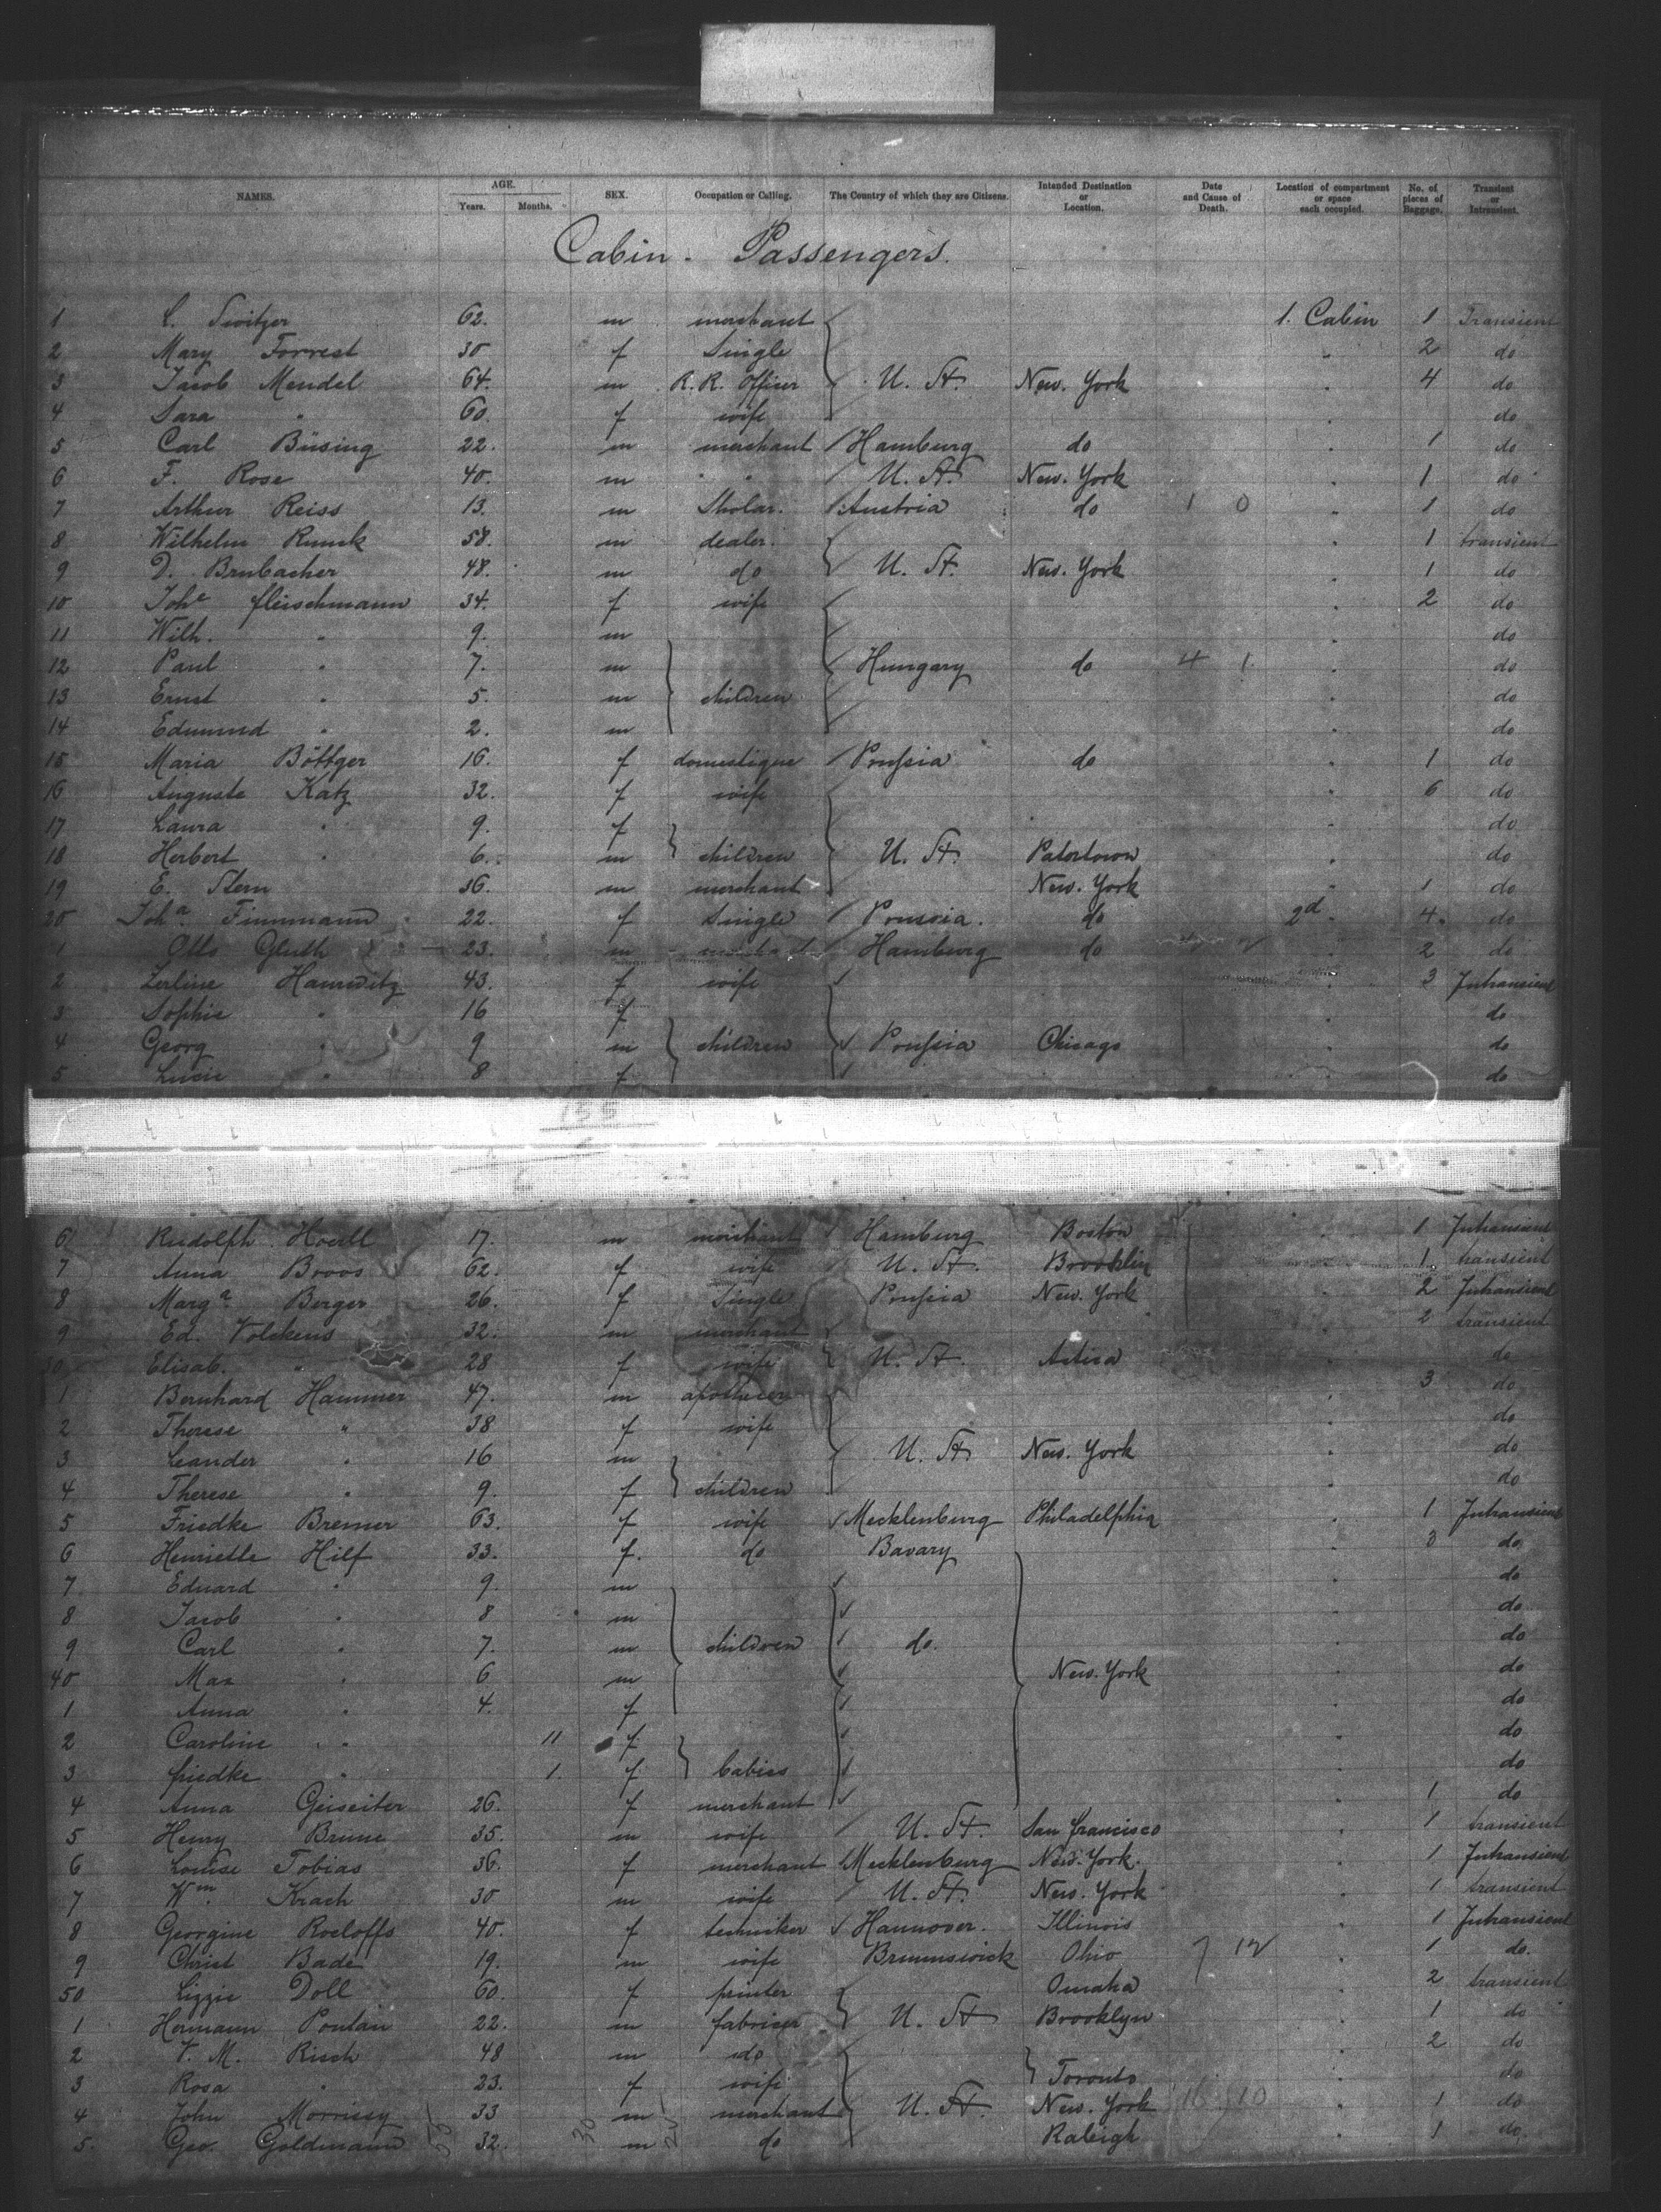 NAMES. AGE. Years. Months. SEX. Occupation or Calling. The Country of which they are Citizens. Intended Destination or Location. Date and Cause of Death. Location of compartment or space each occupied. No. of pieces of Baggage. Transient or Intransient.
Cabin - Passengers.
1 L. Switzer 62. m merchant 1. Cabin 1 Transient
2 Mary Forrest 30 f Single " 2 do
3 Jacob Mendel 64. m R. R. Officer U. St. New. York " 4 do
4 Sara " 60. f wife " do
5 Carl Büsing 22. m merchant Hamburg do " 1 do
6 F. Rose 40. m " " U. St. New. York " 1 do
7 Arthur Reiss 13. m Sholar. Austria do 1 0 " 1 do
8 Wilhelm Runck 58. m dealer. " 1 transient
9 D. Brubacher 48. m do U. St. New. York " 1 do
10 Johe fleischmann 34. f wife " 2 do
11 Wilh. " 9. m " do
12 Paul " 7. m Hungary do 4 1 " do
13 Ernst " 5. m children " do
14 Edmund " 2. m " do
15 Maria Böttger 16. f domestique Prussia do " 1 do
16 Auguste Katz 32. f wife " 6 do
17 Laura " 9. f " do
18 Herbert " 6. m children U. St. Paterson " do
19 E. Stern 36. m merchant New. York " 1 do
20 Joha Finnmann 22. f Single Prussia. do 2d " 4 do
1 Otto Gluth 23. m merchant Hamburg do " 2 do
2 Zerline Haurwitz 43. f wife " 3 Intransient
3 Sophie " 16 f " do
4 Georg " 9 m children Prussia Chicago " do
5 Lucie " 8 f " do
155
6 Rudolph Hoerll 17. m merchant Hamburg Boston " 1 Intransient
7 Anna Broos 62. f wife U. St. Brooklin " 1 transient
8 Marga Berger 26. f Single Prussia New. York " 2 Intransient
9 Ed. Volckens 32. m merchant " 2 transient
30 Elisab. " 28 f wife U. St. " do
1 Bernhard Hammer 47. m " 3 do
2 Therese " 38 f wife " do
3 Leander " 16 m U. St New. York " do
4 Therese " 9. f children " do
5 Friedke Bremer 63. f wife Mecklenburg Philadelphia " 1 Intransient
6 Henriette Hilf 33. f. do Bavary " 3 do
7 Eduard " 9. m " do
8 Jacob " 8 m " do
9 Carl " 7. m children do. " do
40 Max " 6 m New. York " do
1 Anna " 4. f " do
2 Caroline " 11 f " do
3 friedke " 1. f babies " do
4 Anna Geiseiter 26. f merchant " 1 do
5 Henry Brune 35. m wife U. St. San francisco " 1 transient
6 Louise Tobias 36. f merchant Mecklenburg New. York. " 1 Intransient
7 Wm Krach 30 m wife U. St. New. York " 1 transient
8 Georgine Roeloffs 40. f techniker Hannover. Illinois " 1 Intransient
9 Christ Bade 19. m wife Brunnswick Ohio 7 12 " 1 do.
50 Lizzie Doll 60. f printer Omaha " 2 transient
1 Hermann Poulain 22. m U. St Brooklyn " 1 do
2 V. M. Risch 48 m do " 2 do
3 Rosa " 23. f wife Toronto " do
4 John Morrissy 33 m merchant U. St. New. York 16 10 " 1 do
5. Geo. Goldmann 55 32. 30 m 25 do Raleigh " 1 do.